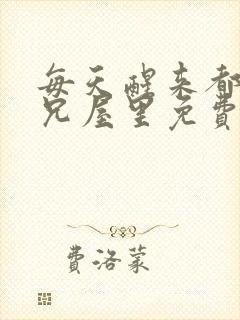 每天醒来都
兄屋里免费
费洛蒙